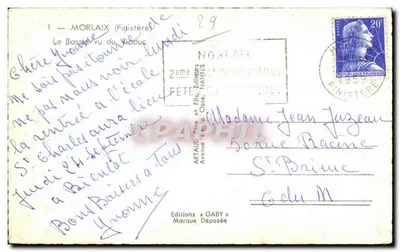 1 - MORLAIX (Finistère)
Le Bassin vu du Viaduc
29
Chère Yvonne
ne sois pas étonnée de
ne pas nous voir lundi
la rentrée de l'école
St Charles aura lieu
Jeudi 24 Septembre
à Bientôt
Bons Baisers à Tous
Yvonne
MORLAIX
2eme
FETE
20F
FINISTERE
ARTAUD Père et Fils, Editeurs
Avenue de la Close, NANTES
Madame Jean Jazeau
50 rue Racine
St Brieuc
C du N
Editions « GABY »
Marque Déposée